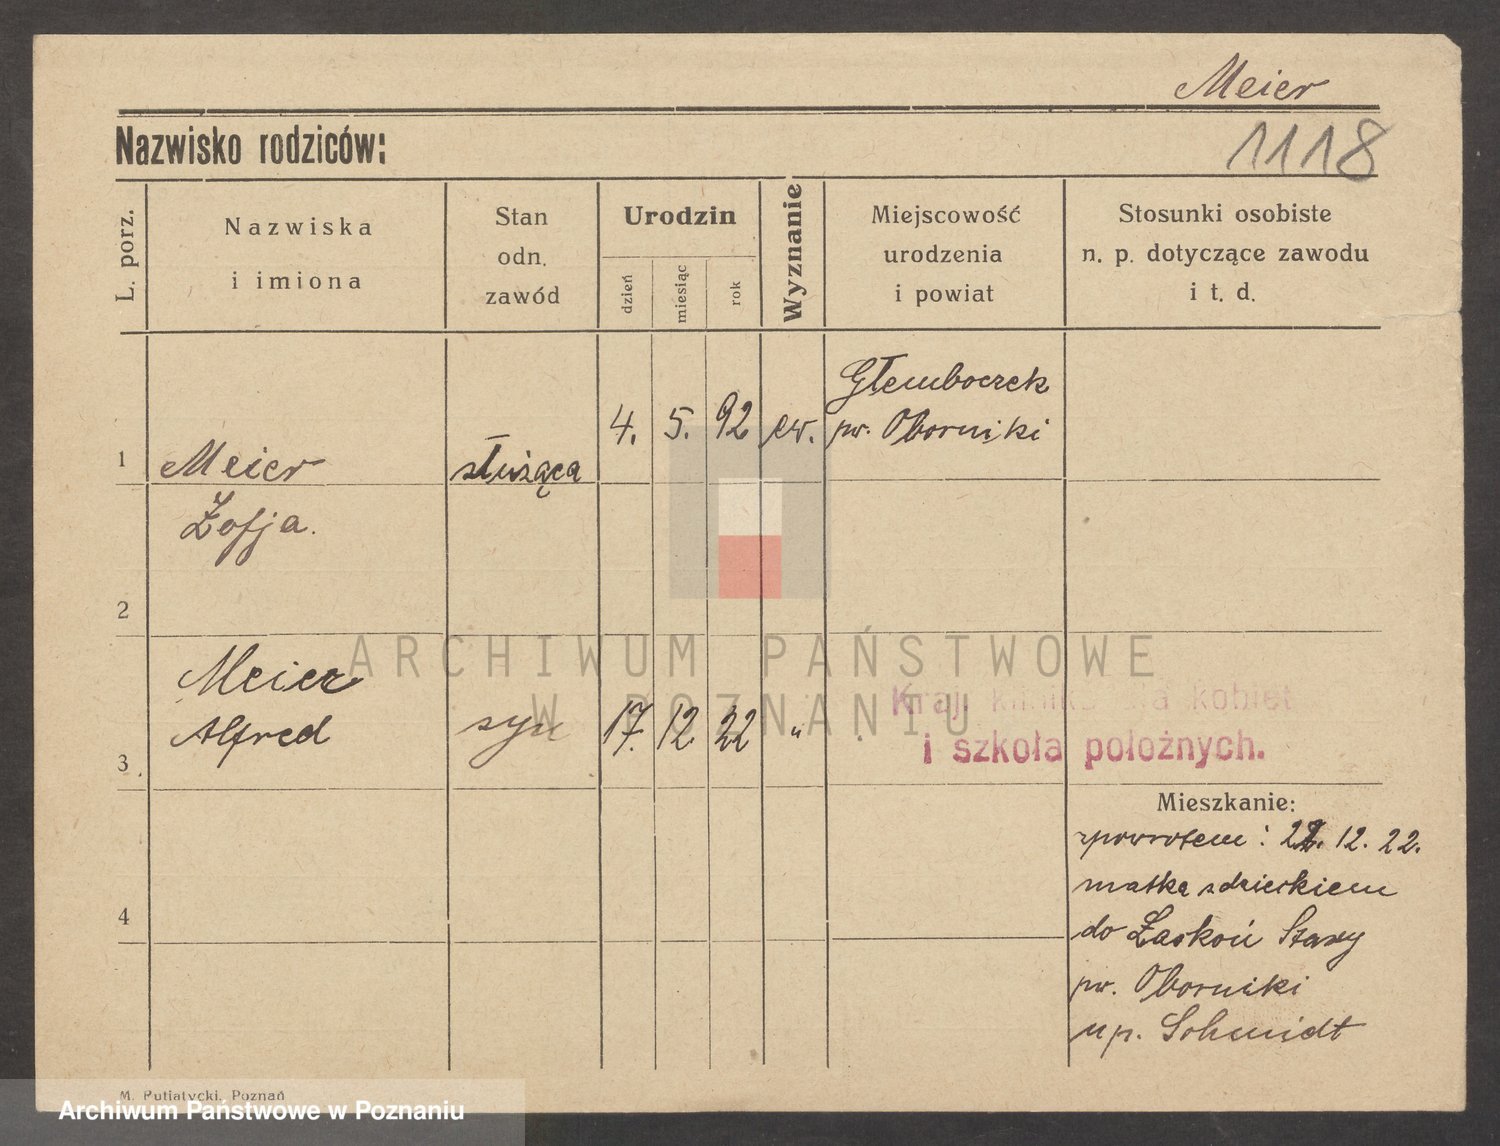 Meier
1118
Nazwisko rodziców:
L. porz.
Nazwiska
i imiona
Stan
odn.
zawód
Urodzin
dzień
miesiąc
rok
Wyznanie
Miejscowość
urodzenia
i powiat
Stosunki osobiste
n. p. dotyczące zawodu
i t. d.
1 Meier służąca 4. 5. 92 ew. Głemboczek
pw. Oborniki
Zofja.
2
Meier
3 Alfred syn 17. 12. 22 "
Kraj. klinika dla kobiet
i szkoła położnych.
Mieszkanie:
zpowrotem: 22. 12. 22.
matka z dzieckiem
do Łaskoń Stary
pw. Oborniki
up. Schmidt
4
M. Putiatycki, Poznań
ARCHIWUM PAŃSTWOWE
W POZNANIU
Archiwum Państwowe w Poznaniu